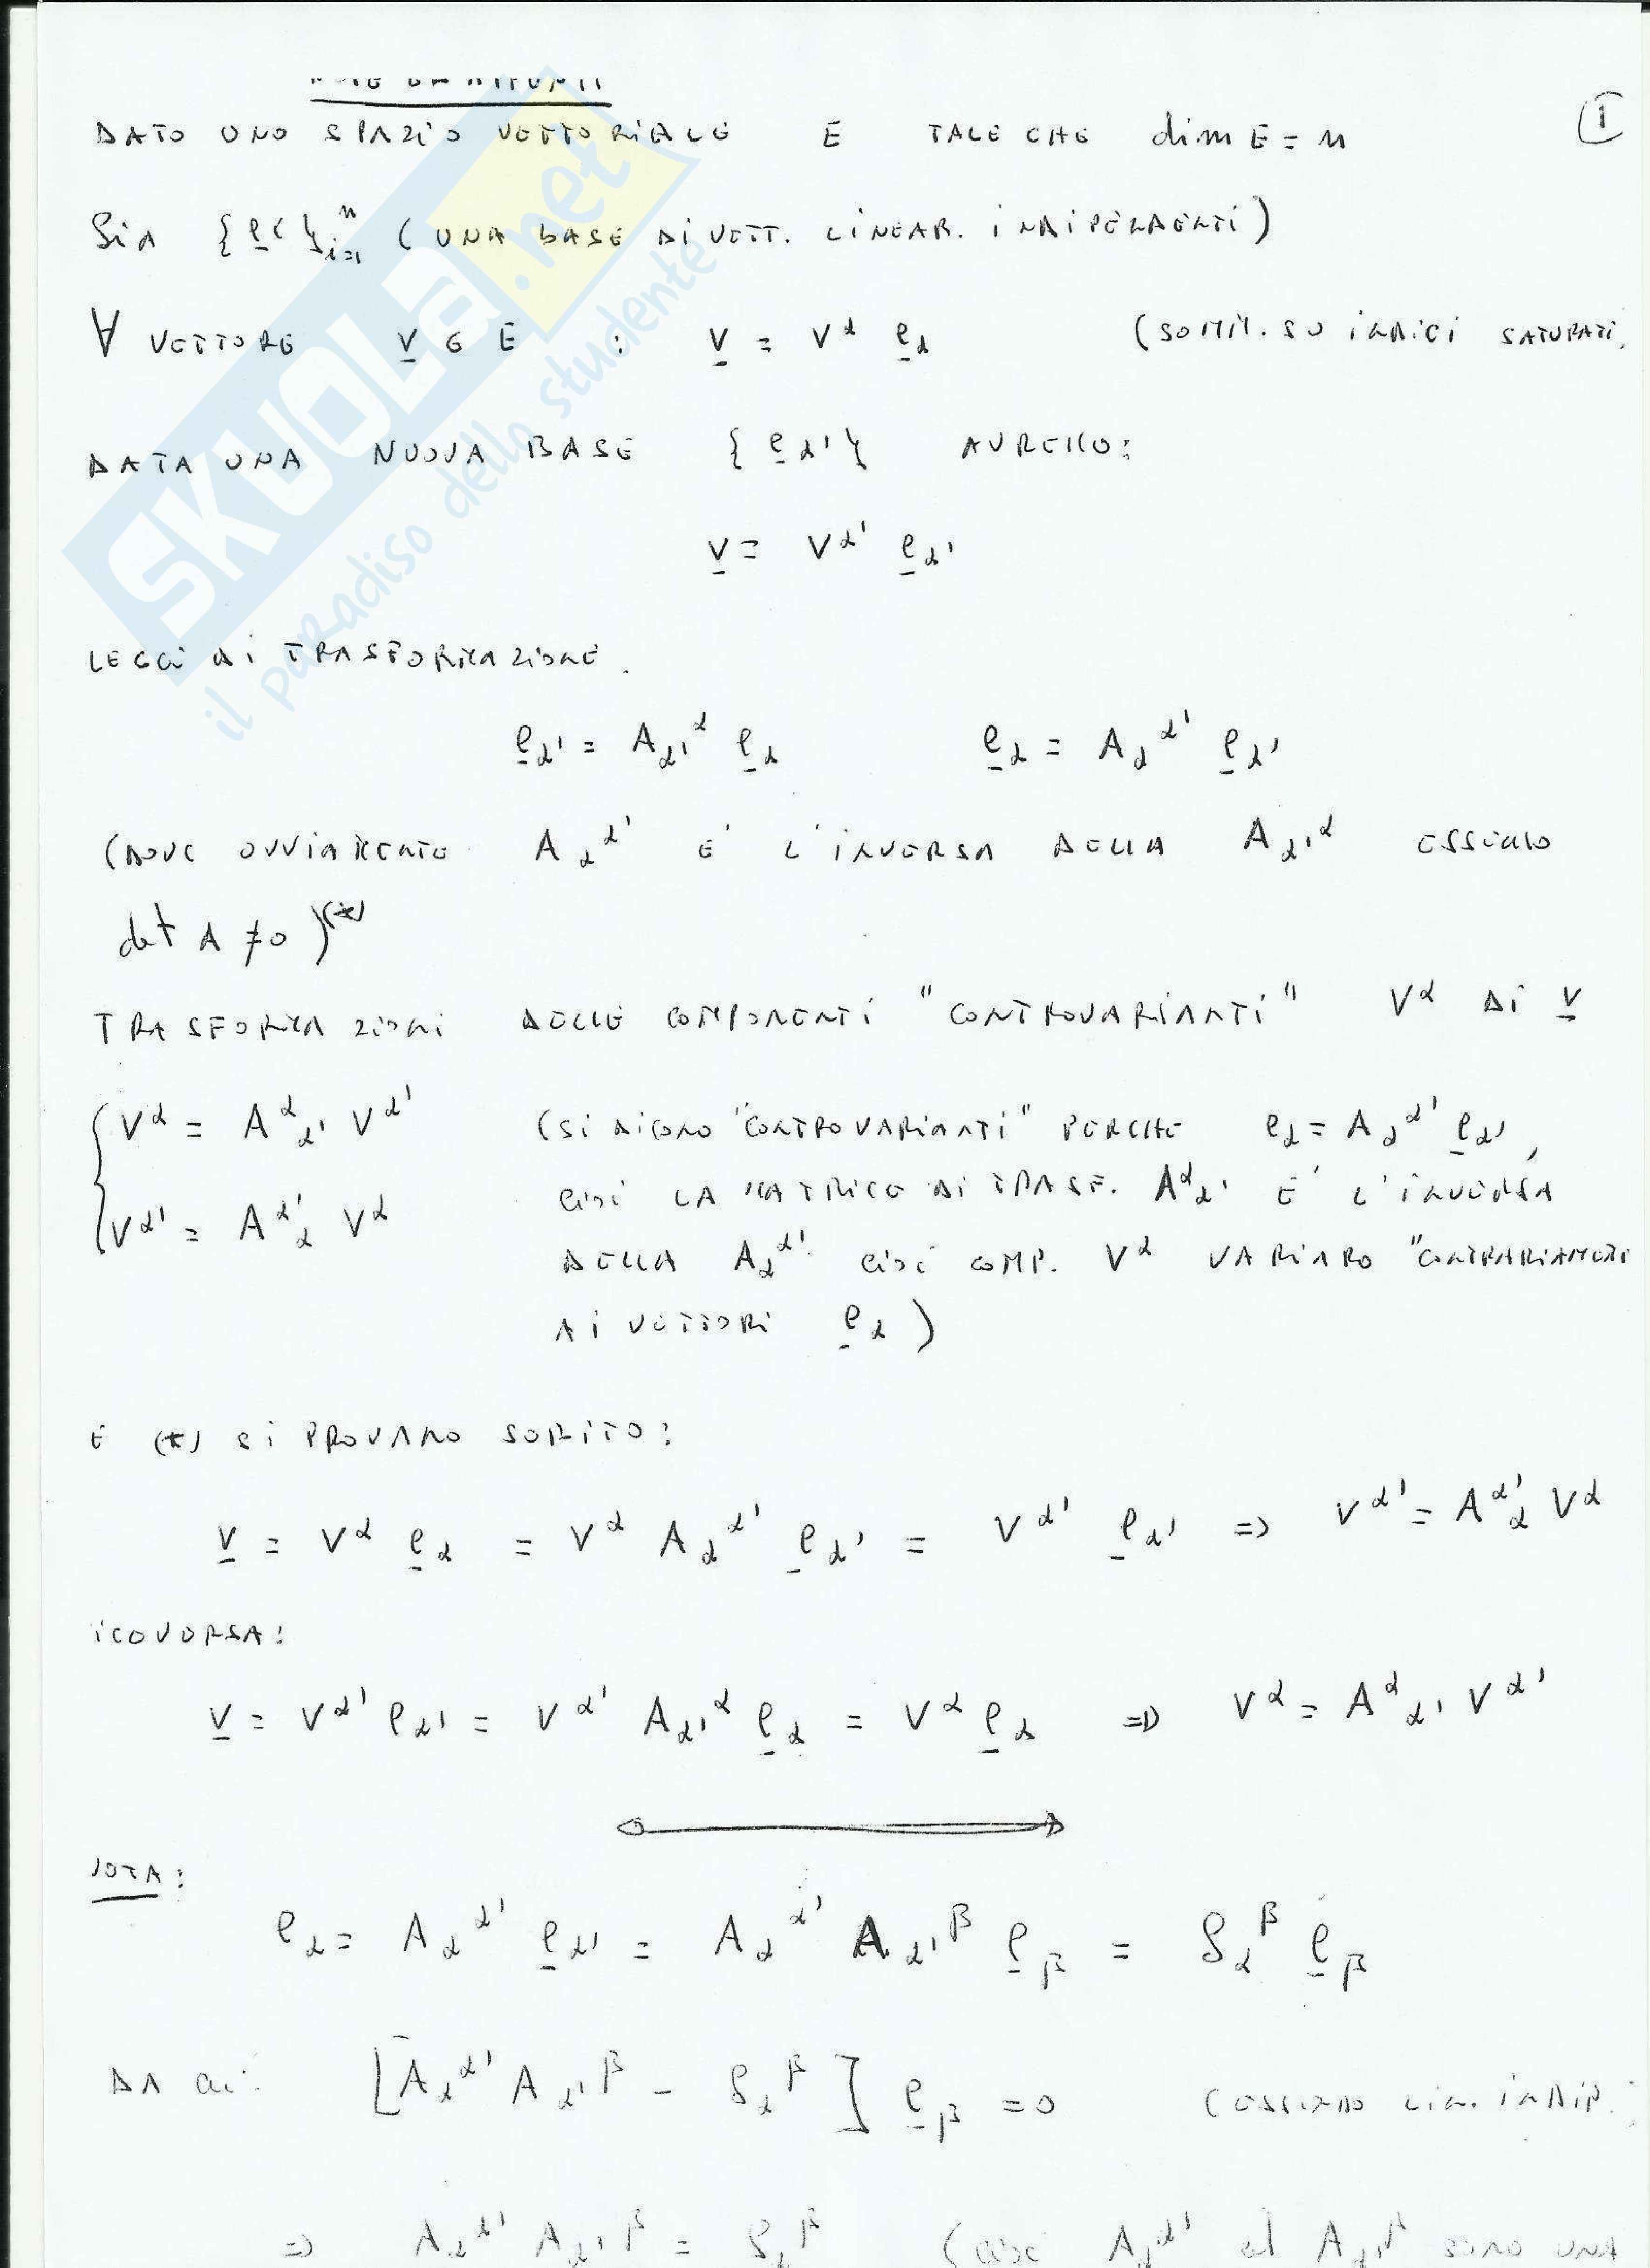 DATO UNO SPAZIO VETTORIALE E TALE CHE dim E = n
①
SIA {e_i}_{i=1}^n (UNA BASE DI VETT. LINEAR. INDIPENDENTI)
∀ VETTORE v ∈ E : v = V^α e_α (SOMM. SU INDICI SATURATI
DATA UNA NUOVA BASE {e_α'} AVREMO:
v = V^α' e_α'
LEGGI DI TRASFORMAZIONE.
e_α' = A_α'^α e_α e_α = A_α^α' e_α'
(DOVE OVVIAMENTE A_α^α' E' L'INVERSA DELLA A_α'^α ESSENDO
det A ≠ 0)^(*)
TRASFORMAZIONI DELLE COMPONENTI "CONTROVARIANTI" V^α DI v
V^α = A^α_α' V^α' (SI DICONO "CONTROVARIANTI" PERCHE e_α = A_α^α' e_α',
CIOE' LA MATRICE DI TRASF. A^α_α' E' L'INVERSA
V^α' = A^α'_α V^α
DELLA A_α^α' CIOE' COMP. V^α VARIANO "CONTRARIAMENTE
AI VETTORI e_α)
E (*) SI PROVANO SUBITO:
v = V^α e_α = V^α A_α^α' e_α' = V^α' e_α' => V^α' = A^α'_α V^α
VICEVERSA:
v = V^α' e_α' = V^α' A_α'^α e_α = V^α e_α => V^α = A^α_α' V^α'
NOTA:
e_α = A_α^α' e_α' = A_α^α' A_α'^β e_β = δ_α^β e_β
DA CUI: [A_α^α' A_α'^β - δ_α^β] e_β = 0 (ESSENDO LIN. INDIP.
=> A_α^α' A_α'^β = δ_α^β (CIOE A_α^α' ed A_α'^β SONO UNA
SKUOLA.net
il paradiso dello studente